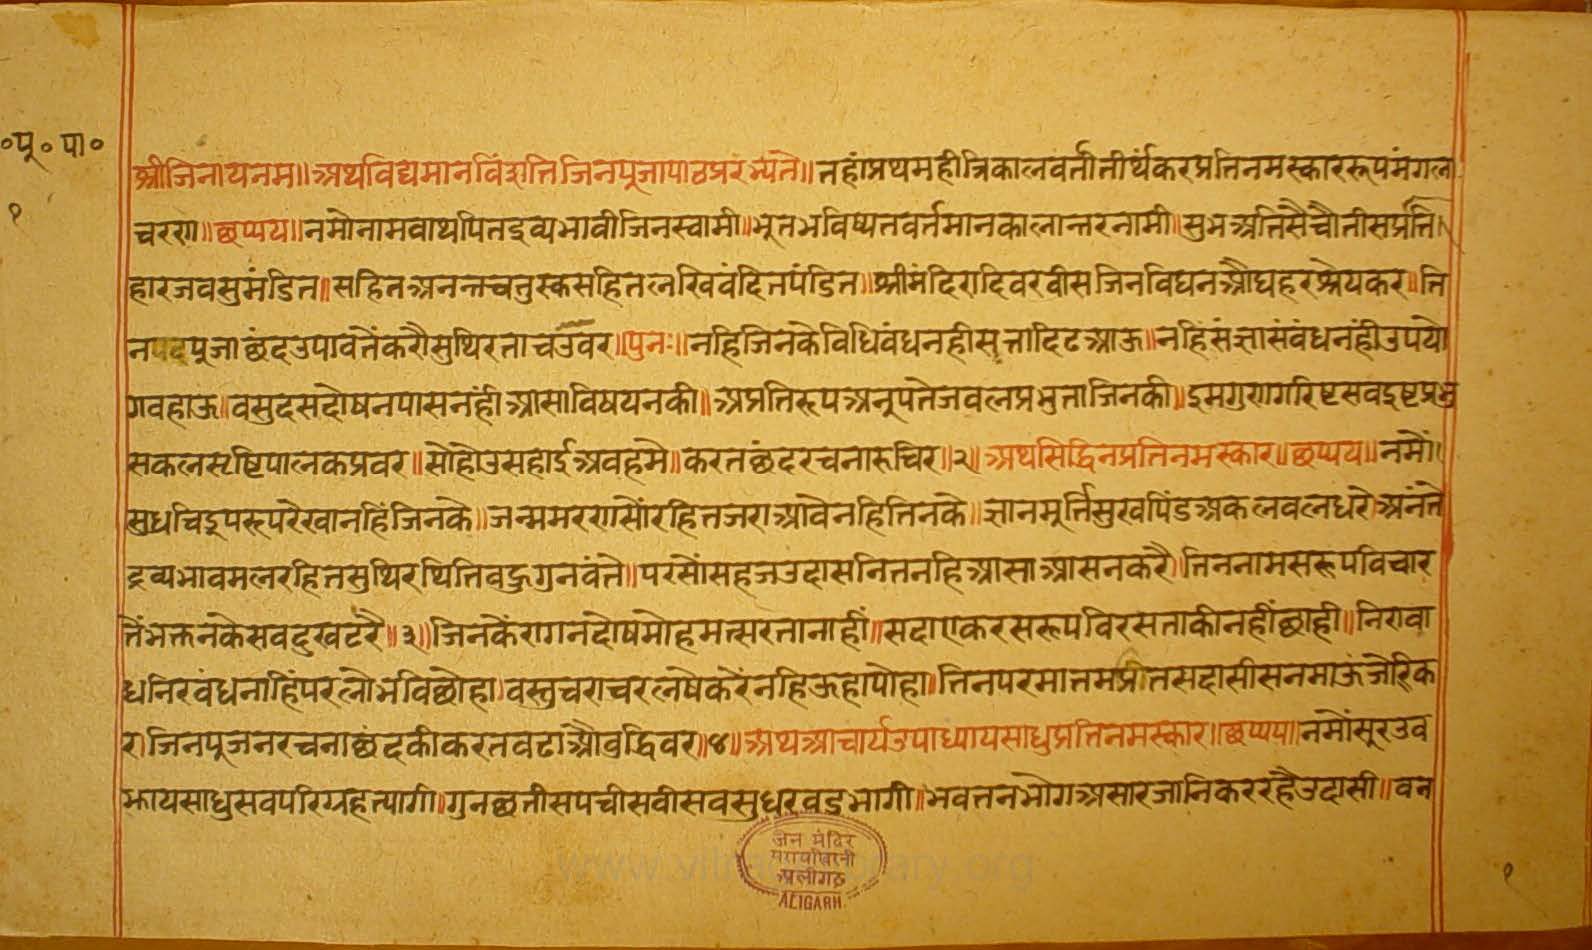 ०पू०पा०
१
श्रीजिनायनमः॥अथविद्यमानविंशतिजिनपूजापाठप्ररंभ्यते॥तहांप्रथमहीत्रिकालवर्तीतीर्थकरप्रतिनमस्काररूपमंगला
चरण॥छप्पय॥नमोनामवाथपितद्रव्यभावीजिनस्वामी॥भूतभविष्यतवर्तमानकालान्तरनामी॥सुभअतिसैचौतीसप्रति
हारजवसुमंडित॥सहितअनन्तचतुस्कसहितलखिवंदितपंडित॥श्रीमंदिरादिवरवीसजिनविघनऔघहरश्रेयकर॥ति
नपदपूजाछंदउपावतेंकरौसुथिरताचउवर॥पुनः॥नहिजिनकेविधिवंधनहीसत्तादिटआऊ॥नहिंसंज्ञासंवंधनंहीउपयो
गवहाऊ॥वसुदसदोषनपासनंहीआसाविषयनकी॥अप्रतिरूपअनूपतेजवलप्रभुताजिनकी॥इमगुणगरिष्टसवइष्टप्रभु
सकलसृष्टिपालकप्रवर॥सोहोउसहाईअवहमै॥करतछंदरचनारुचिर॥२॥अथसिद्धिनप्रतिनमस्कार॥छप्पय॥नमों
सुधचिद्रूपरूपरेखानहिंजिनकै॥जन्ममरणसोंरहितजराआवेनहितिनके॥ज्ञानमूर्तिसुखपिंडअकलवलधरेअनंते
द्रव्यभावमलरहितसुथिरथितिवहुगुनवंते॥परसोंसहजउदासनितनहिआसाआसनकरै॥तिननामसरूपविचार
तेंभक्तनकेसवदुखटरै॥३॥जिनकेंरागनदोषमोहमत्सरतानाहीं॥सदाएकरसरूपविरसताकीनहींछाही॥निरावा
धनिरवंधनाहिंपरलोभविछोहा॥वस्तुचराचरलषेकरेंनहिऊहापोहा॥तिनपरमातमप्रीतसदासीसनमाऊंजोरिक
र॥जिनपूजनरचनाछंदकीकरतवटाऔवुद्धिवर॥४॥अथआचार्यउपाध्यायसाधुप्रतिनमस्कार॥छप्पय॥नमोंसूरउव
झायसाधुसवपरिग्रहत्यागी॥गुनछतीसपचीसवीसवसुधरवडभागी॥भवतनभोगअसारजानिकररहैउदासी॥वन
जैन मंदिर
अलीगढ़
ALIGARH
१